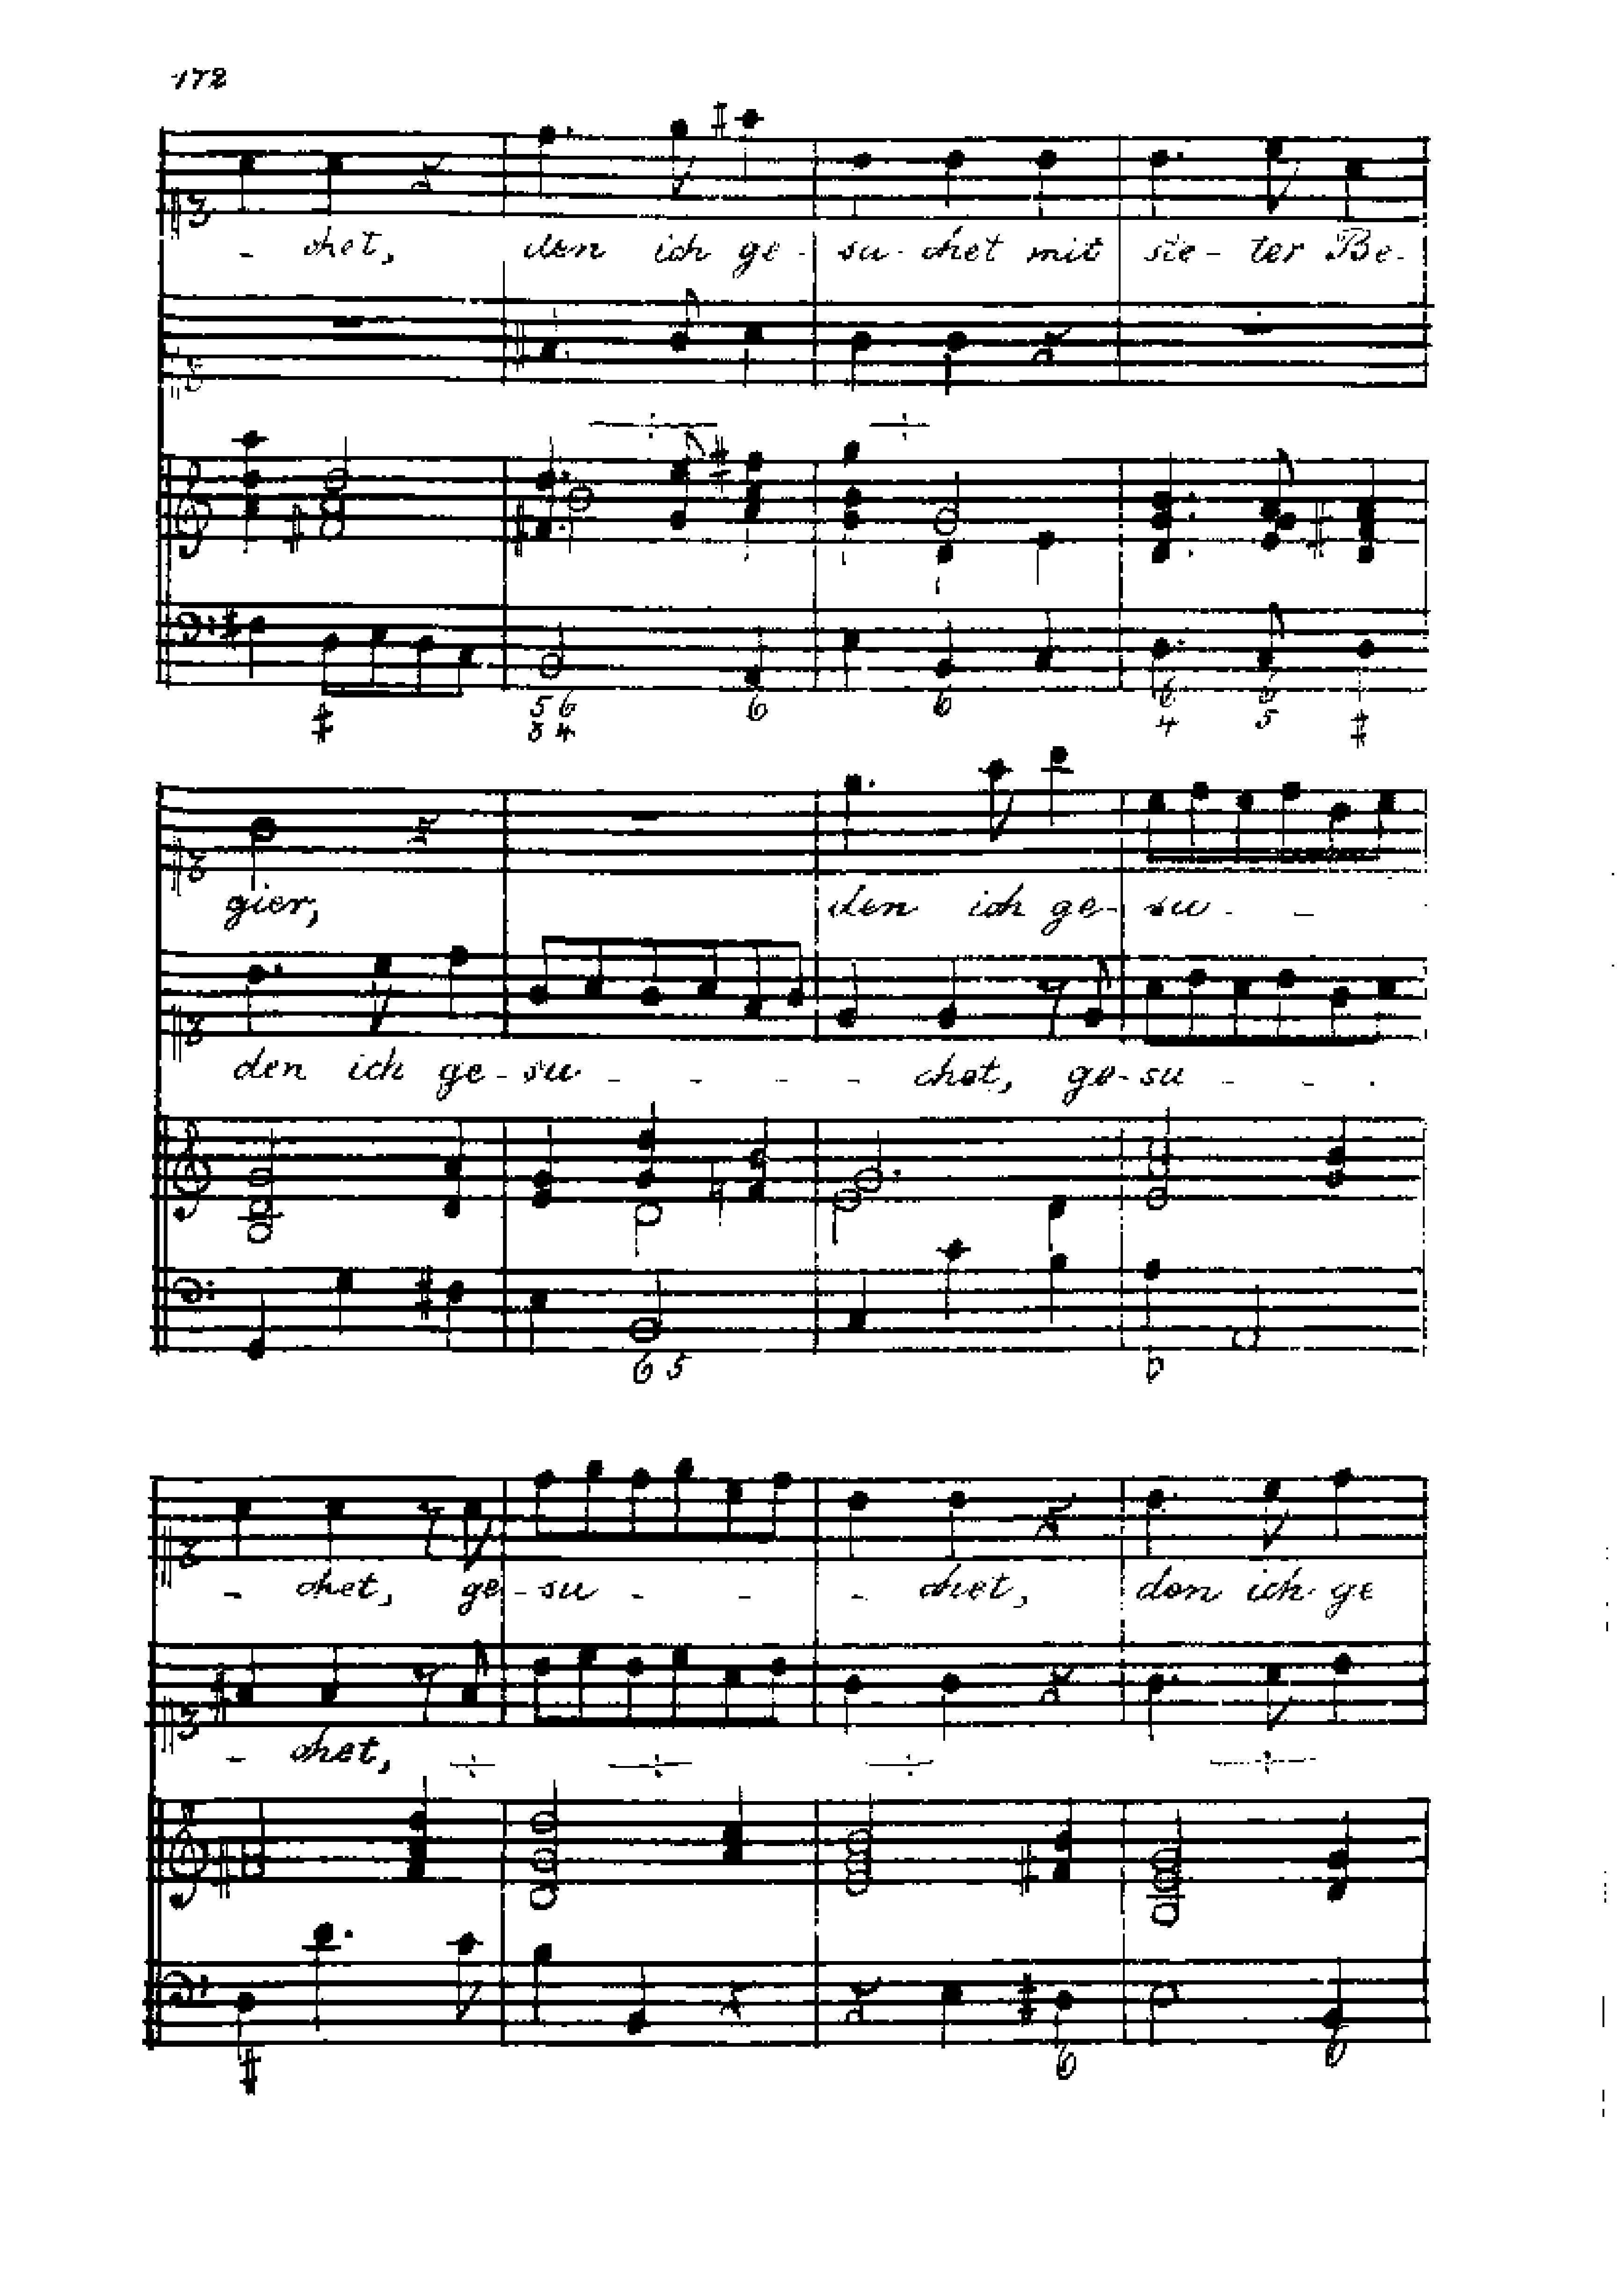 172
- chet, den ich ge- su- chet mit ste- ter Be-
# 5 6 6 6 6 6
3 4 4 5 #
gier, den ich ge- su - -
den ich ge- su - - - - chet, ge- su - - .
6 5 6
- chet, ge- su - - - chet, den ich ge
- chet,
# 6 6